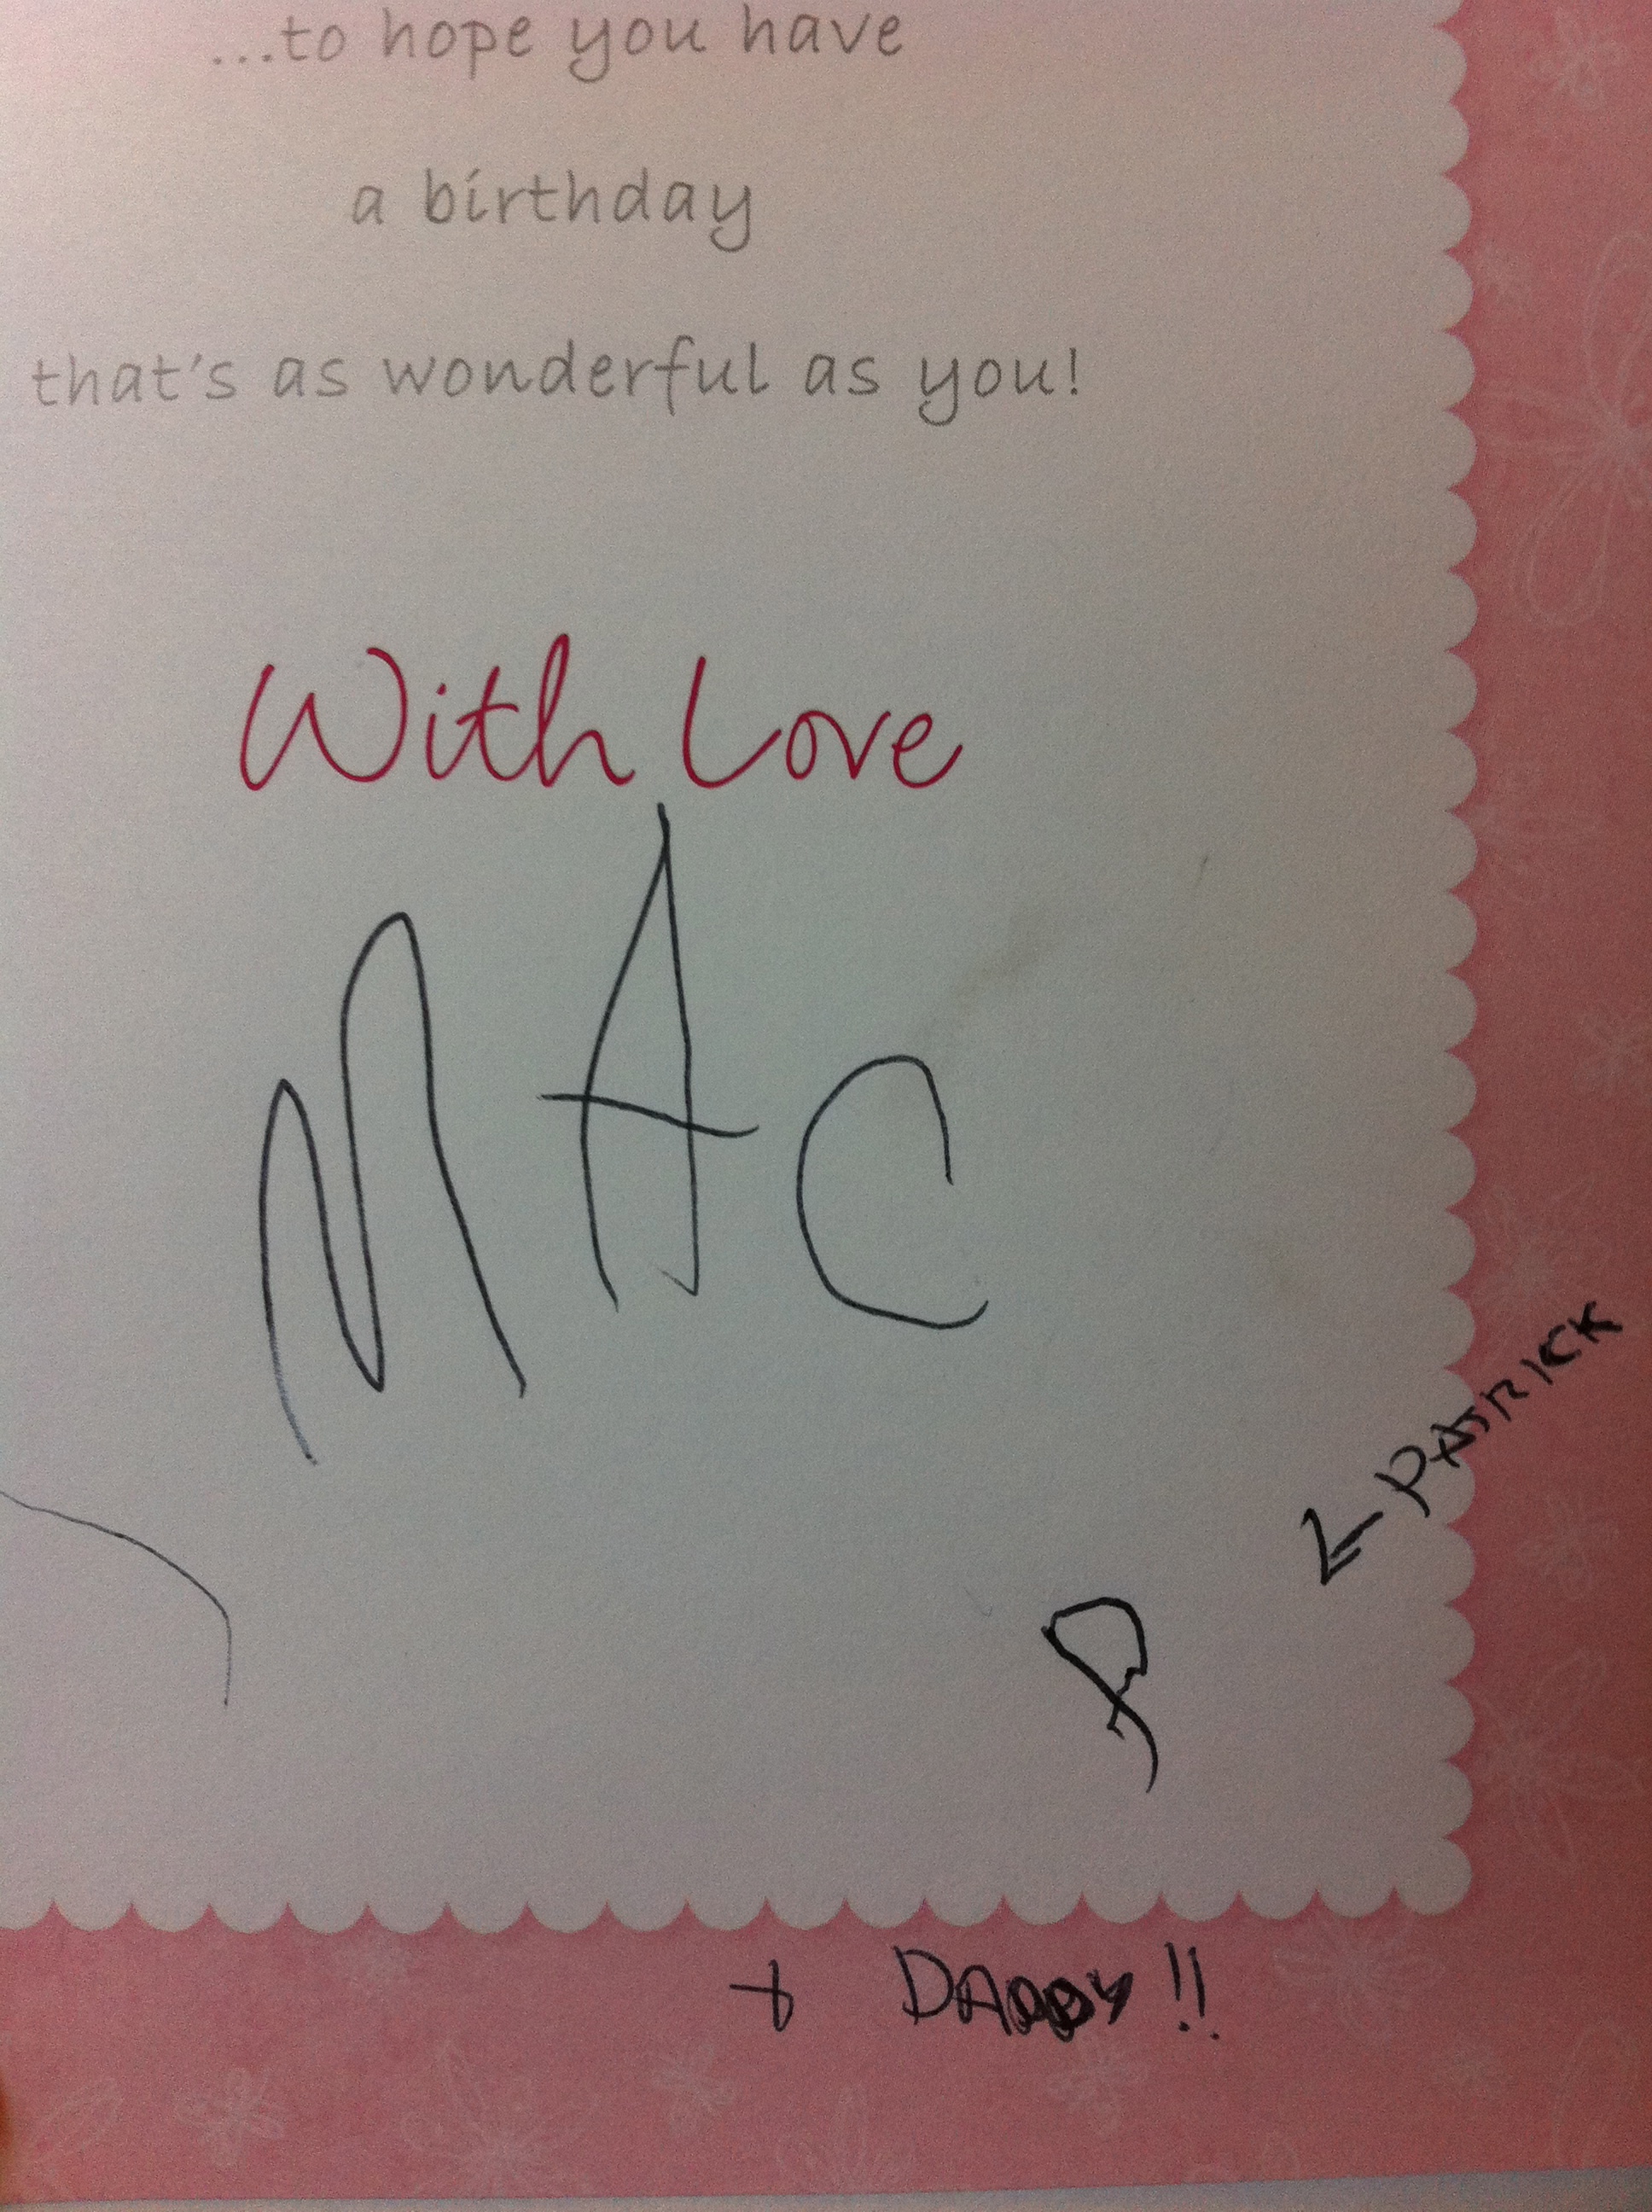 ...to hope you have
a birthday
that's as wonderful as you!
With Love
MAC
PATRICK
P
+ DADDY!!